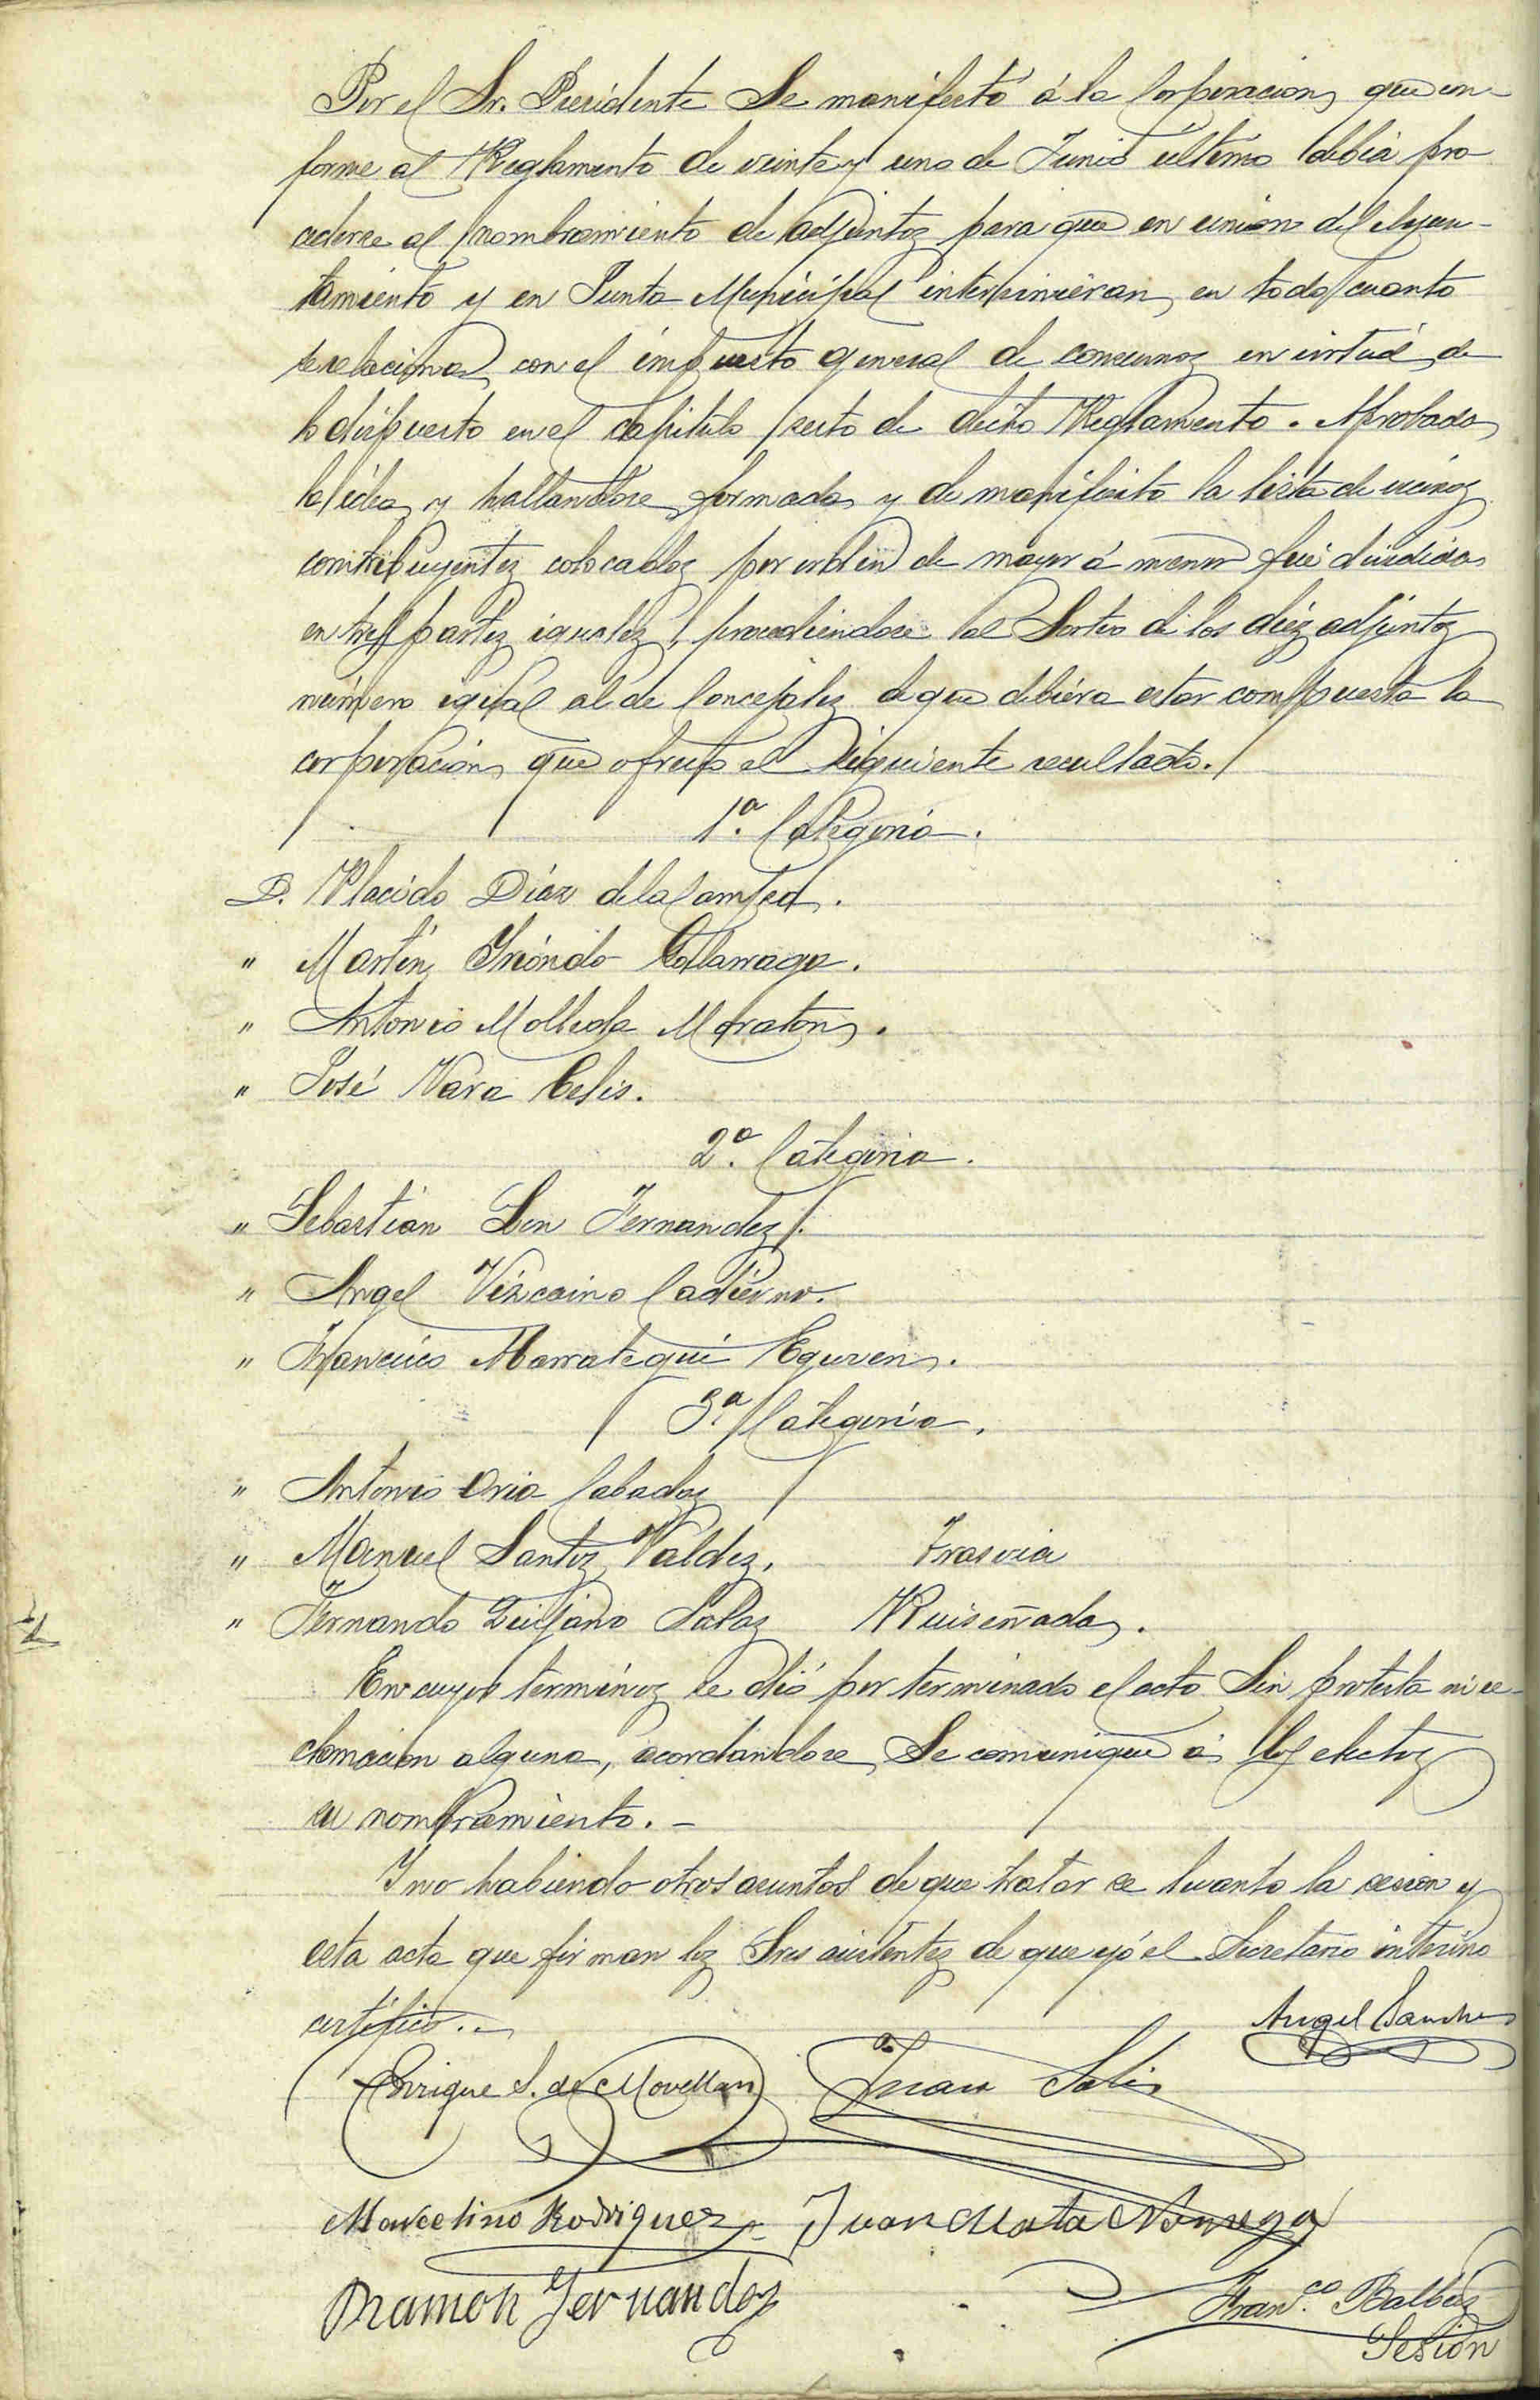 Por el Sr. Presidente Se manifestó á la Corporacion, que con-
forme al Reglamento de veinte y uno de Junio último debia pro-
cederse al nombramiento de adjuntos para que en union del Ayun-
tamiento y en Junta Municipal intervinieran, en todo cuanto
se relaciona con el impuesto general de consumos en virtud de
lo dispuesto en el capitulo sesto de dicho Reglamento. Aprobada
la idea y hallandose formada y de manifiesto la lista de vecinos
contribuyentes colocados por orden de mayor á menor fué dividida
en tres partes iguales, procediendose al Sorteo de los diez adjuntos
número igual al de Concejales de que debiera estar compuesta la
corporacion, que ofreció el Siguiente resultado.
1.ª Categoria.
D. Placido Diaz de la Campa.
" Martin Iriondo Gallarraga.
" Antonio Molleda Maraton.
" José Vara Celis.
2.ª Categoria.
" Sebastian Sen Fernandez.
" Angel Vizcaino Cadierno.
" Francisco Marrategui Eguren.
3.ª Categoria.
" Antonio Oria Cabadas
" Manuel Santos Valdes. Trasvia
" Fernando Quijano Salas Ruiseñada.
En cuyos terminos se dió por terminado el acto Sin protesta ni re-
clamacion alguna, acordandose Se comunique á los electos
su nombramiento. -
Y no habiendo otros asuntos de que tratar se levanto la sesion y
esta acta que firman los Sres asistentes de que yó el Secretario interino
certifico. -
Angel Sanchez
Enrique S. de Movellan Juan Solis
Marcelino Rodriguez Juan Mata Noriega
Ramon Fernandez
Fran.co Balbas
Sesion